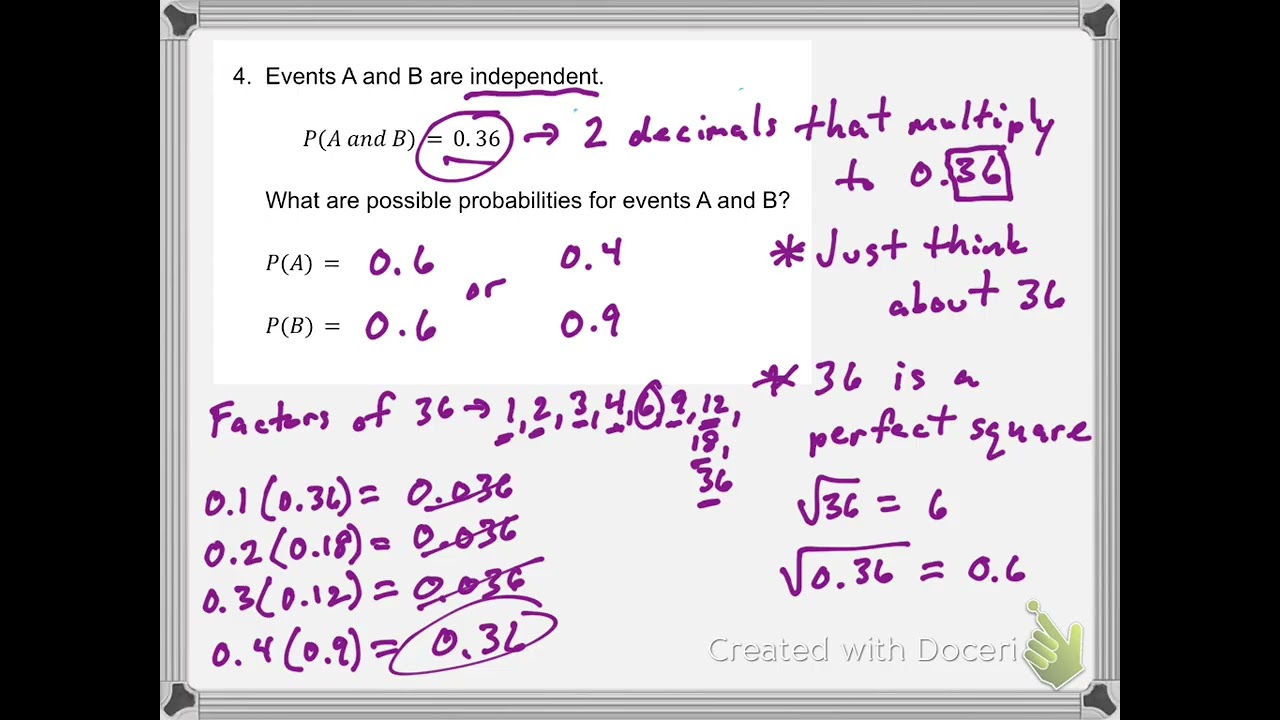 4. Events A and B are independent.
P(A and B) = 0.36 → 2 decimals that multiply
to 0.36
What are possible probabilities for events A and B?
P(A) = 0.6 or 0.4
P(B) = 0.6 0.9
* Just think
about 36
* 36 is a
perfect square
√36 = 6
√0.36 = 0.6
Factors of 36 → 1, 2, 3, 4, 6, 9, 12,
18,
36
0.1(0.36) = 0.036
0.2(0.18) = 0.036
0.3(0.12) = 0.036
0.4(0.9) = 0.36
Created with Doceri